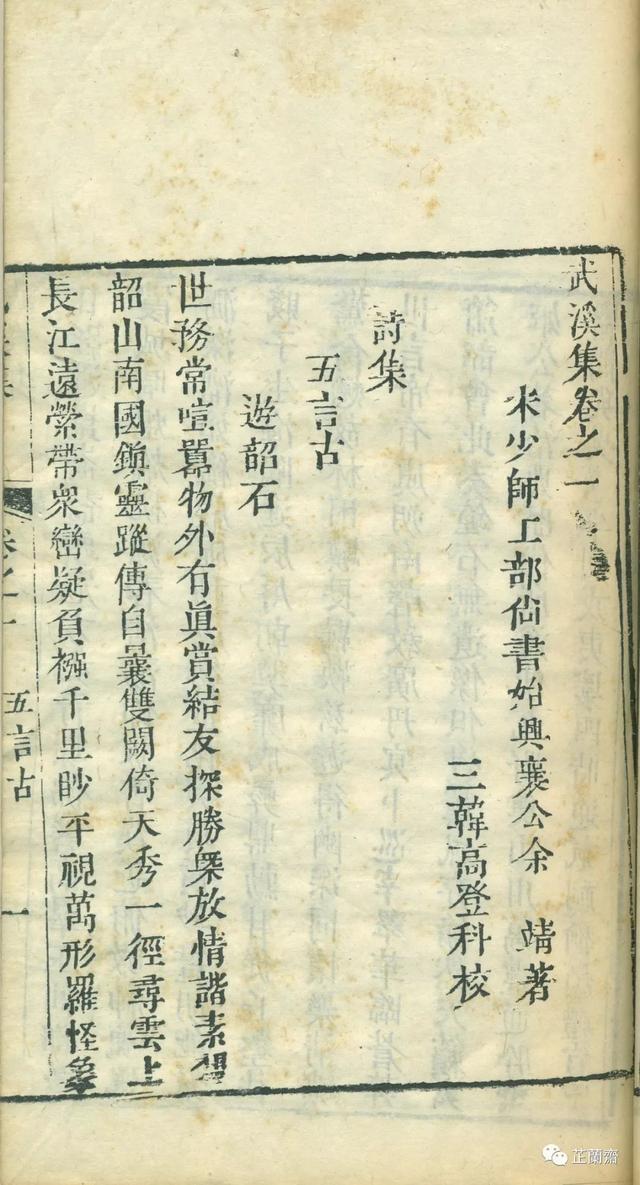 武溪集卷之一
宋少師工部尙書始興襄公余　靖著
三韓高登科校
詩集
五言古
遊韶石
世務常喧囂物外有眞賞結友探勝槩放情諧素想
韶山南國鎭靈蹤傳自曩雙闕倚天秀一徑尋雲上
長江遠縈帶衆巒疑負襁千里眇平視萬形羅怪象
卷之一　五言古　一
芷蘭齋